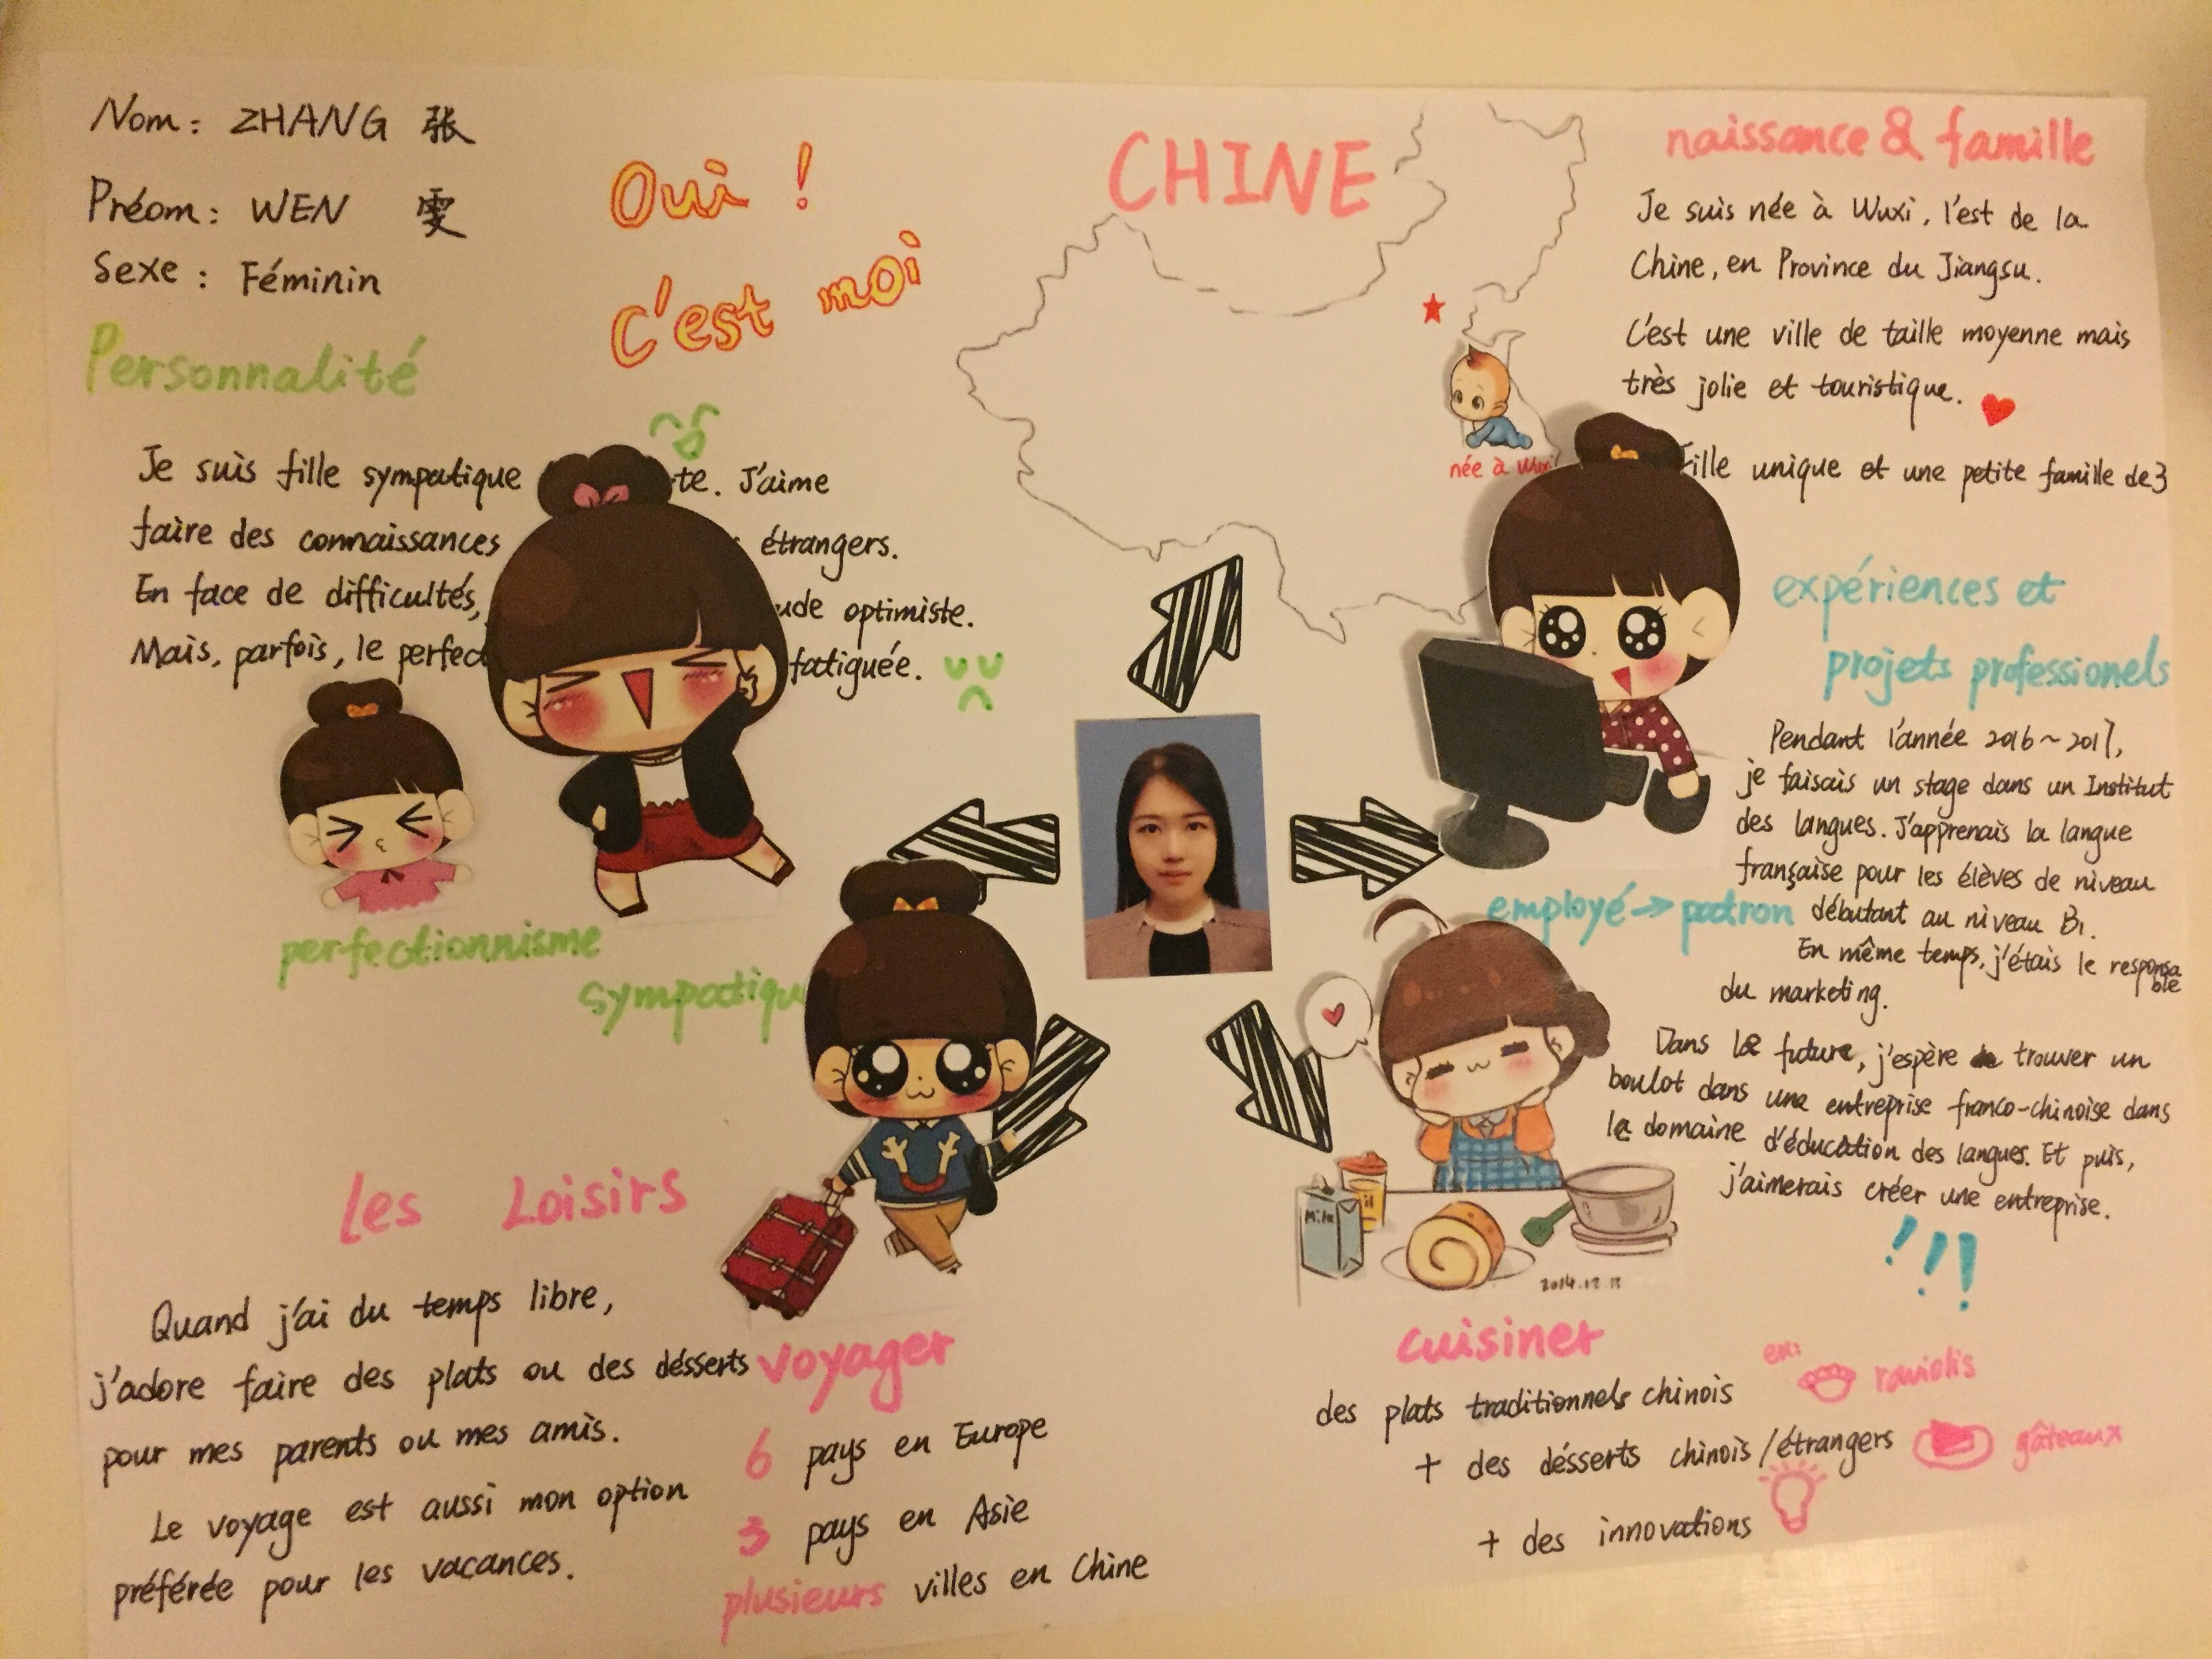 Nom : ZHANG 张
Préom : WEN 雯
Sexe : Féminin
Oui !
C'est moi
CHINE
Personnalité
Je suis fille sympatique te. J'aime
faire des connaissances étrangers.
En face de difficultés, ude optimiste.
Mais, parfois, le perfec fatiguée.
perfectionnisme
sympatiqu
naissance & famille
Je suis née à Wuxi, l'est de la
Chine, en Province du Jiangsu.
C'est une ville de taille moyenne mais
très jolie et touristique.
née à Wuxi
Fille unique et une petite famille de 3
expériences et
projets professionels
Pendant l'année 2016~2017,
je faisais un stage dans un Institut
des langues. J'apprenais la langue
française pour les élèves de niveau
débutant au niveau B1.
En même temps, j'étais le responsable
du marketing.
employé → patron
Dans le future, j'espère trouver un
boulot dans une entreprise franco-chinoise dans
le domaine d'éducation des langues. Et puis,
j'aimerais créer une entreprise.
!!!
les Loisirs
Quand j'ai du temps libre,
j'adore faire des plats ou des désserts
pour mes parents ou mes amis.
Le voyage est aussi mon option
préférée pour les vacances.
voyager
6 pays en Europe
3 pays en Asie
plusieurs villes en Chine
Milk
il
cuisiner
des plats traditionnels chinois
ex: raviolis
+ des désserts chinois / étrangers
gâteaux
+ des innovations